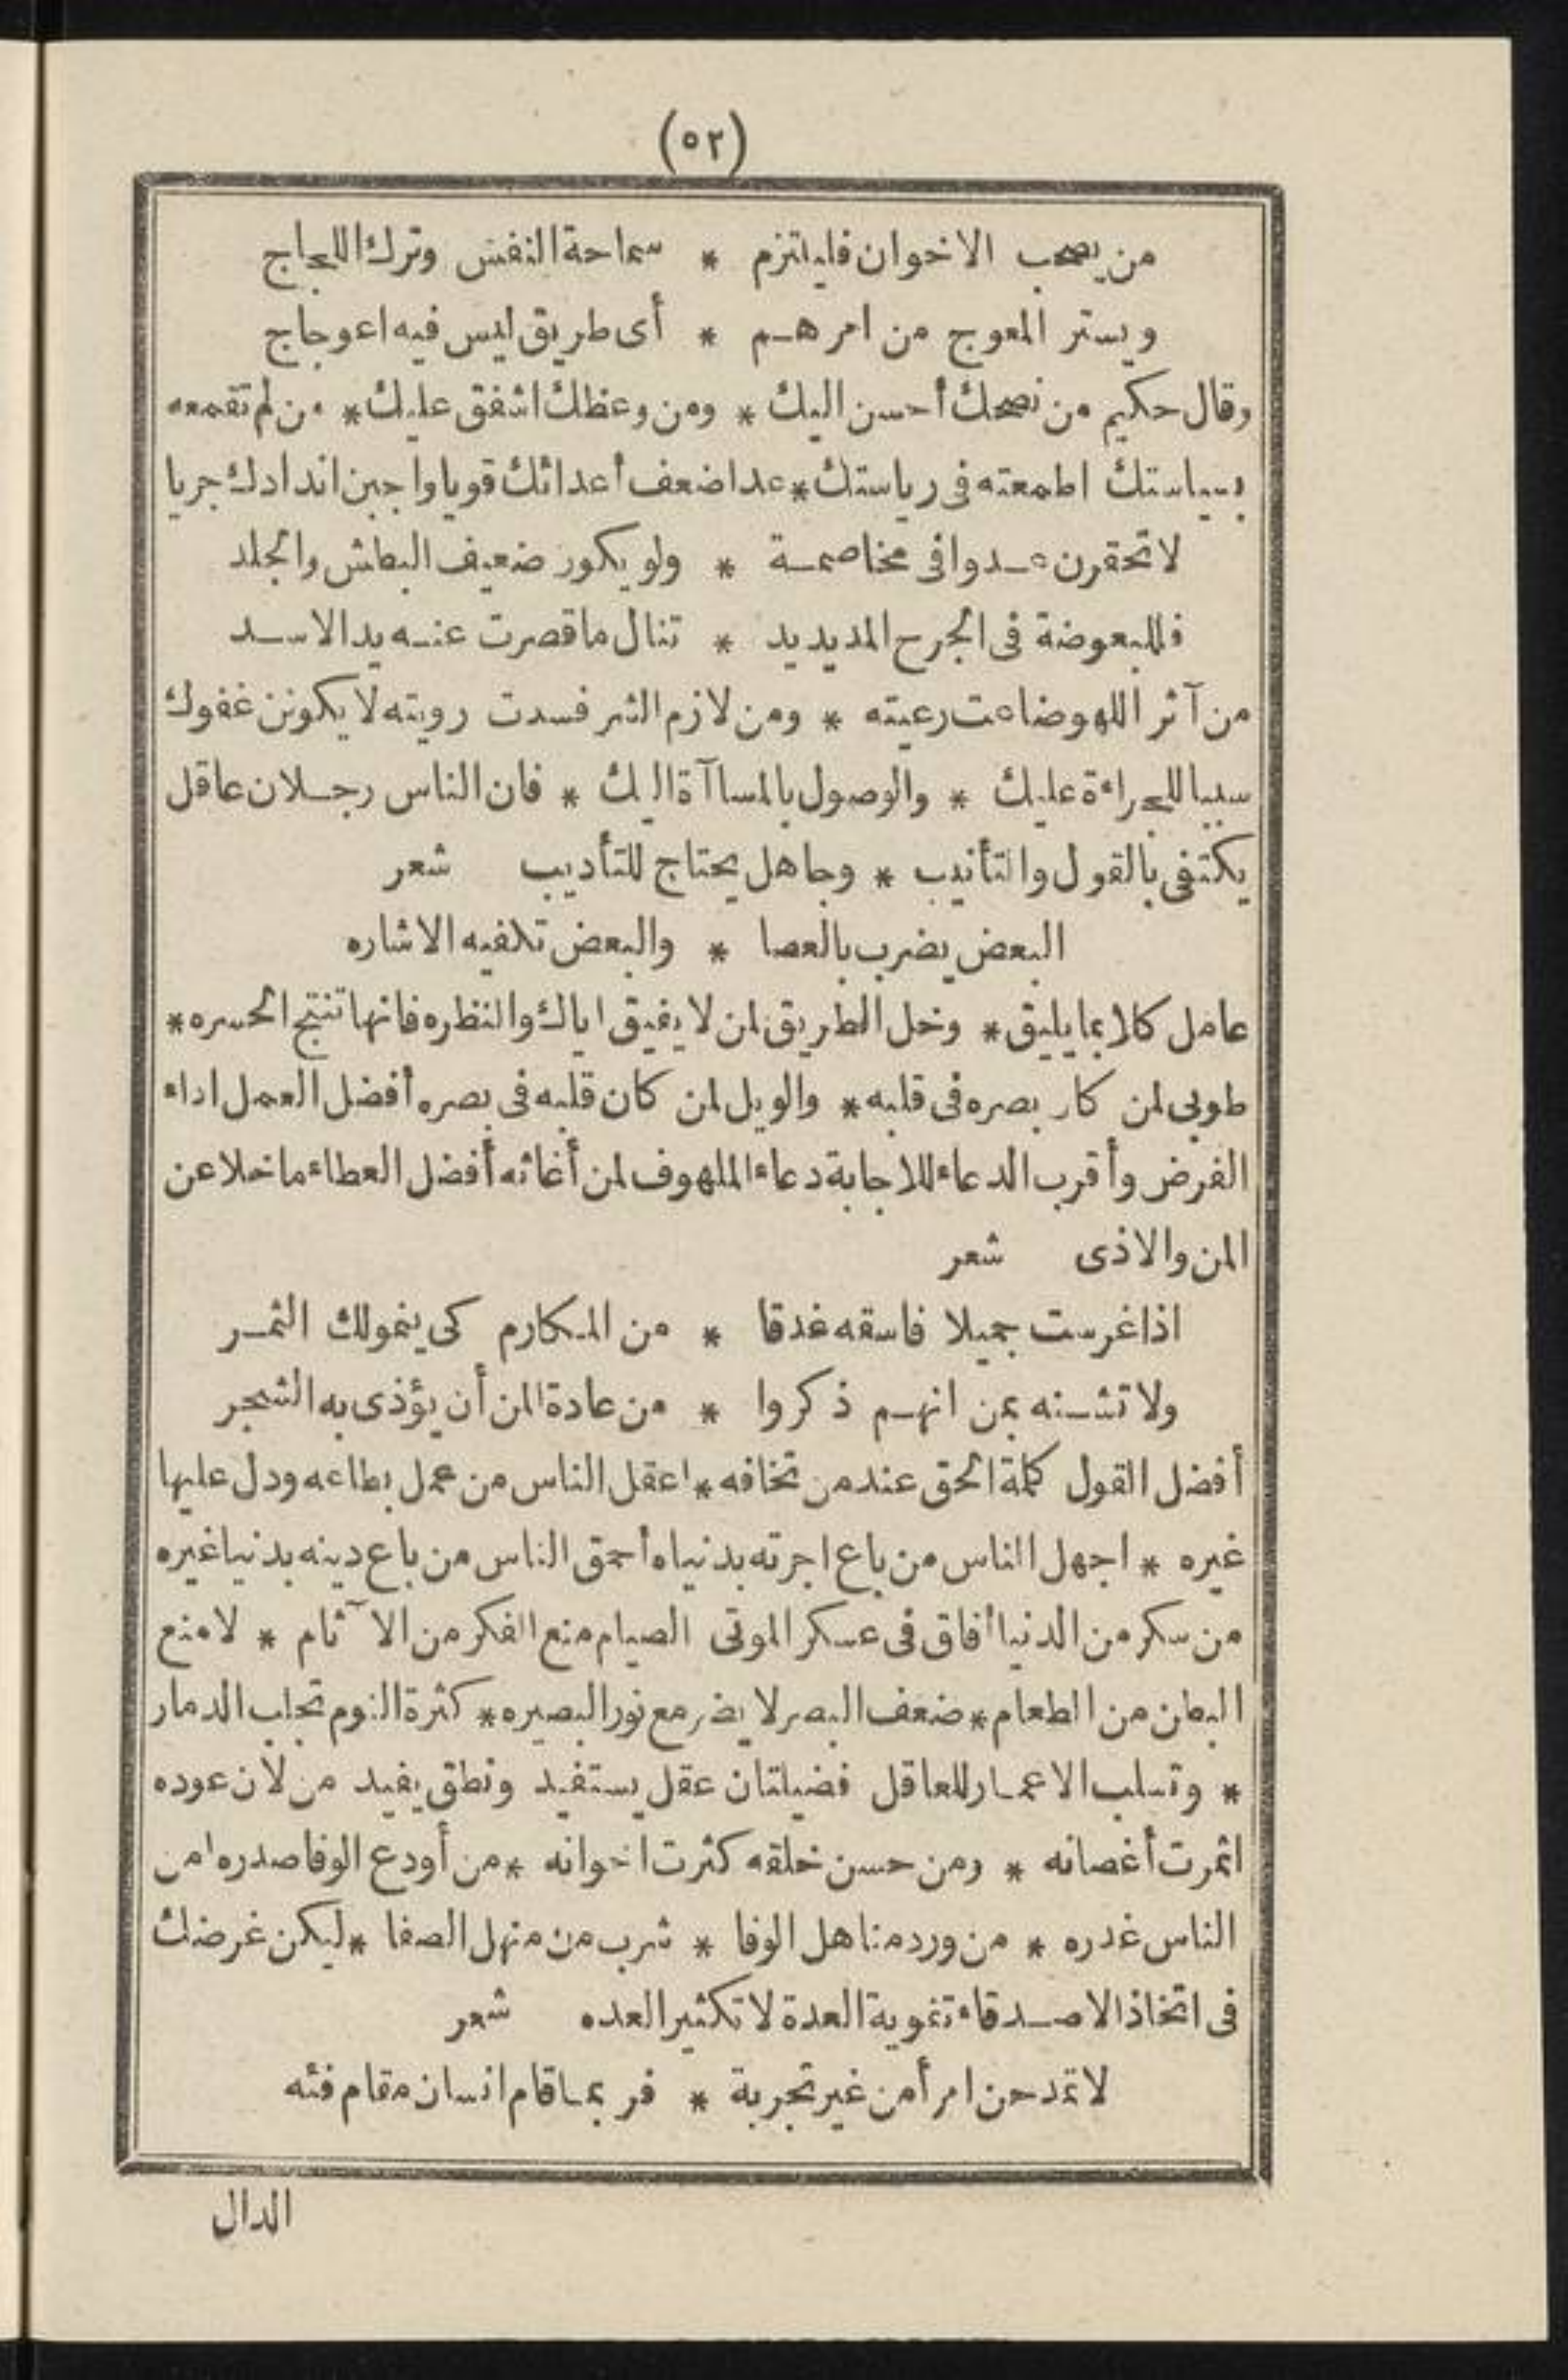 (٥٢)
من يصحب الاخوان فليلتزم * سماحة النفس وترك اللجاج
ويستر المعوج من امرهم * أى طريق ليس فيه اعوجاج
وقال حكيم من نصحك أحسن اليك * ومن وعظك اشفق عليك * من لم تقمعه
بسياستك اطمعته فى رياستك * عد اضعف أعدائك قويا واجبن اندادك جريا
لا تحقرن عدوا فى مخاصمة * ولو يكون ضعيف البطش والجلد
فللبعوضة فى الجرح المديد يد * تنال ما قصرت عنه يد الاسد
من آثر اللهو ضاعت رعيته * ومن لازم الشر فسدت رويته لا يكونن عفوك
سببا للجراءة عليك * والوصول بالمساآة اليك * فان الناس رجلان عاقل
يكتفى بالقول والتأنيب * وجاهل يحتاج للتأديب شعر
البعض يضرب بالعصا * والبعض تكفيه الاشاره
عامل كلا بما يليق * وخل الطريق لمن لا يفيق اياك والنظره فانها تنتج الحسره *
طوبى لمن كان بصره فى قلبه * والويل لمن كان قلبه فى بصره أفضل العمل اداء
الفرض وأقرب الدعاء للاجابة دعاء الملهوف لمن أغاثه أفضل العطاء ما خلا عن
المن والاذى شعر
اذا غرست جميلا فاسقه غدقا * من المكارم كى ينمو لك الثمر
ولا تشنه بمن انهم ذكروا * من عادة المن أن يؤذى به الشجر
أفضل القول كلمة الحق عند من تخافه * اعقل الناس من عمل بطاعه ودل عليها
غيره * اجهل الناس من باع اجرته بدنياه أحمق الناس من باع دينه بدنيا غيره
من سكر من الدنيا أفاق فى عسكر الموتى الصيام منع الفكر من الاآثام * لا منع
البطن من الطعام * ضعف البصر لا يضر مع نور البصيره * كثرة النوم تجلب الدمار
* وتسلب الاعمار للعاقل فضيلتان عقل يستفيد ونطق يفيد من لان عوده
اثمرت أغصانه * ومن حسن خلقه كثرت اخوانه * من أودع الوفا صدره امن
الناس غدره * من ورد مناهل الوفا * شرب من منهل الصفا * ليكن غرضك
فى اتخاذ الاصدقاء تقوية العدة لا تكثير العده شعر
لا تمدحن امرأ من غير تجربة * فربما قام انسان مقام فئه
الدال